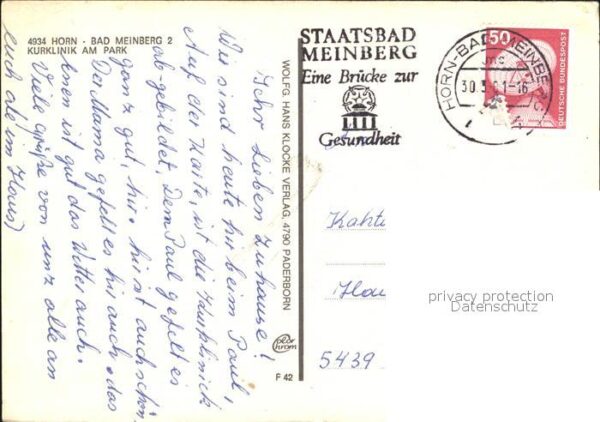 4934 HORN - BAD MEINBERG 2
KURKLINIK AM PARK
Ihr Lieben Zuhause!
Wir sind heute hir beim Paul,
Auf der Karte, ist die Kurklinick
ab-gebildet. Dem Paul gefelt es
ganz gut, hir. hir ist auch schön
Der Mama gefelt es hir auch. das
ist gut das Wetter auch.
Viele Grüße von uns alle an
Euch ale im Haus)
WOLFG. HANS KLOCKE VERLAG, 4790 PADERBORN
color
chrom
F 42
STAATSBAD
MEINBERG
Eine Brücke zur
Gesundheit
HORN-BAD MEINBERG
30.3. 1-16
50
DEUTSCHE BUNDESPOST
Kath
Hau
5439
privacy protection
Datenschutz